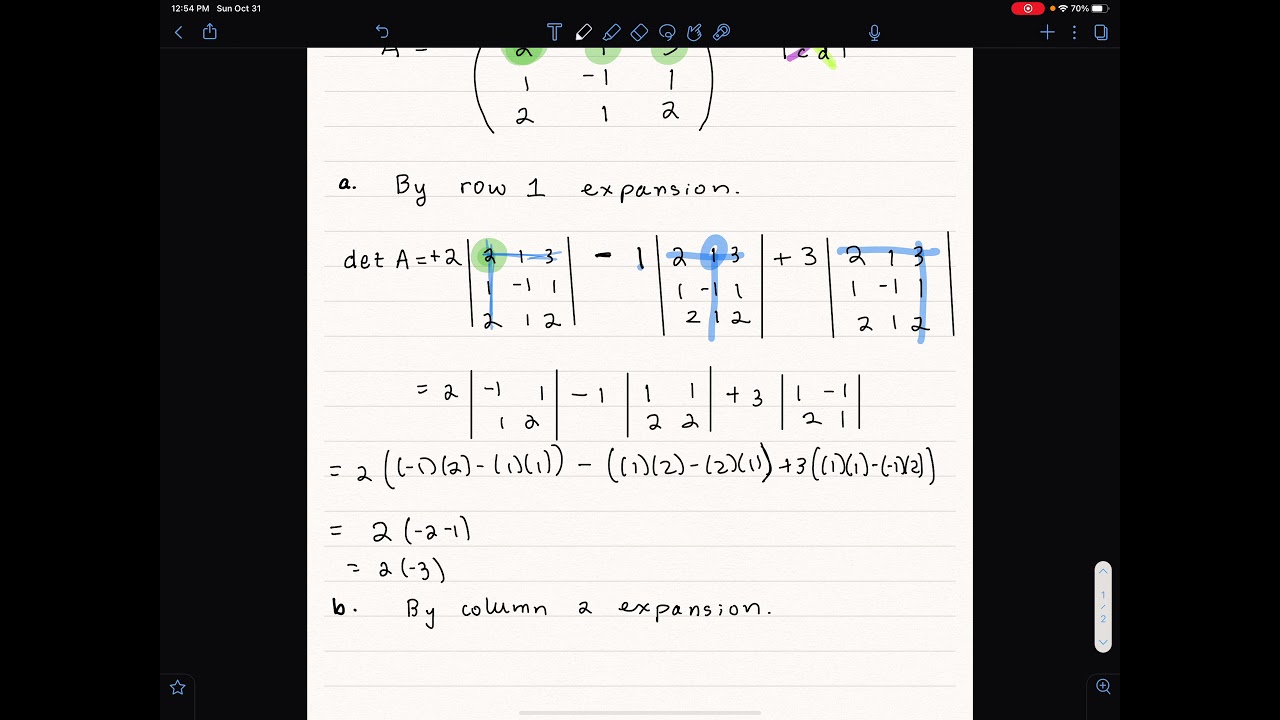 12:54 PM Sun Oct 31 70%
A = 2 1 3 | c d |
1 -1 1
2 1 2
a. By row 1 expansion.
det A = +2 | 2 1 3 | - 1 | 2 1 3 | + 3 | 2 1 3 |
1 -1 1 1 -1 1 1 -1 1
2 1 2 2 1 2 2 1 2
= 2 | -1 1 | - 1 | 1 1 | + 3 | 1 -1 |
1 2 2 2 2 1
= 2 ((-1)(2) - (1)(1)) - ((1)(2) - (2)(1)) + 3((1)(1) - (-1)(2))
= 2 (-2 -1)
= 2 (-3)
b. By column 2 expansion.
1
/
2